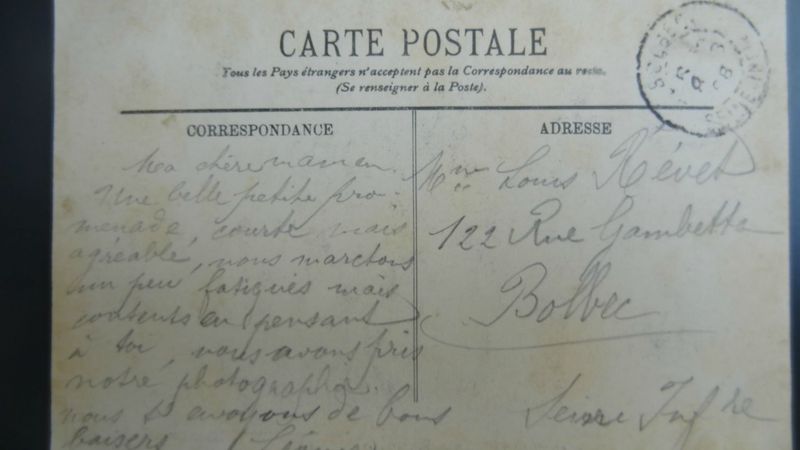 CARTE POSTALE
Tous les Pays étrangers n'acceptent pas la Correspondance au recto.
(Se renseigner à la Poste).
CORRESPONDANCE
Ma chère maman.
Une belle petite pro-
menade, courte mais
agréable, nous marchons
un peu fatigués mais
contents en pensant
à toi, nous avons pris
notre photographie.
nous t'envoyons de bons
baisers
ADRESSE
Mme Louis Révet
122 Rue Gambetta
Bolbec
Seine Infre